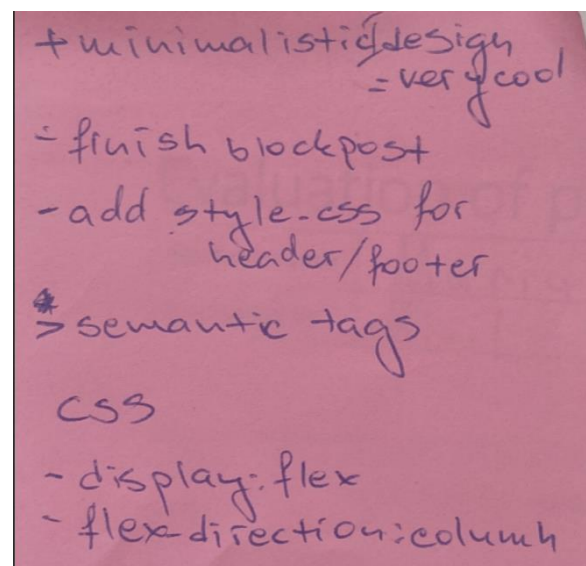 + minimalistic/design
= very cool
- finish blockpost
- add style.css for
header/footer
> semantic tags
css
- display: flex
- flex-direction: column